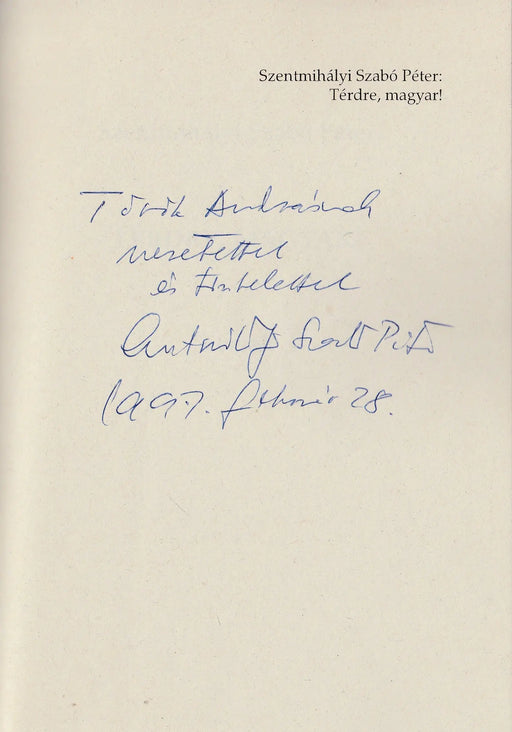 Szentmihályi Szabó Péter:
Térdre, magyar!
Török Andrásnak
szeretettel
és tisztelettel
Szentmihályi Szabó Péter
1997. február 28.